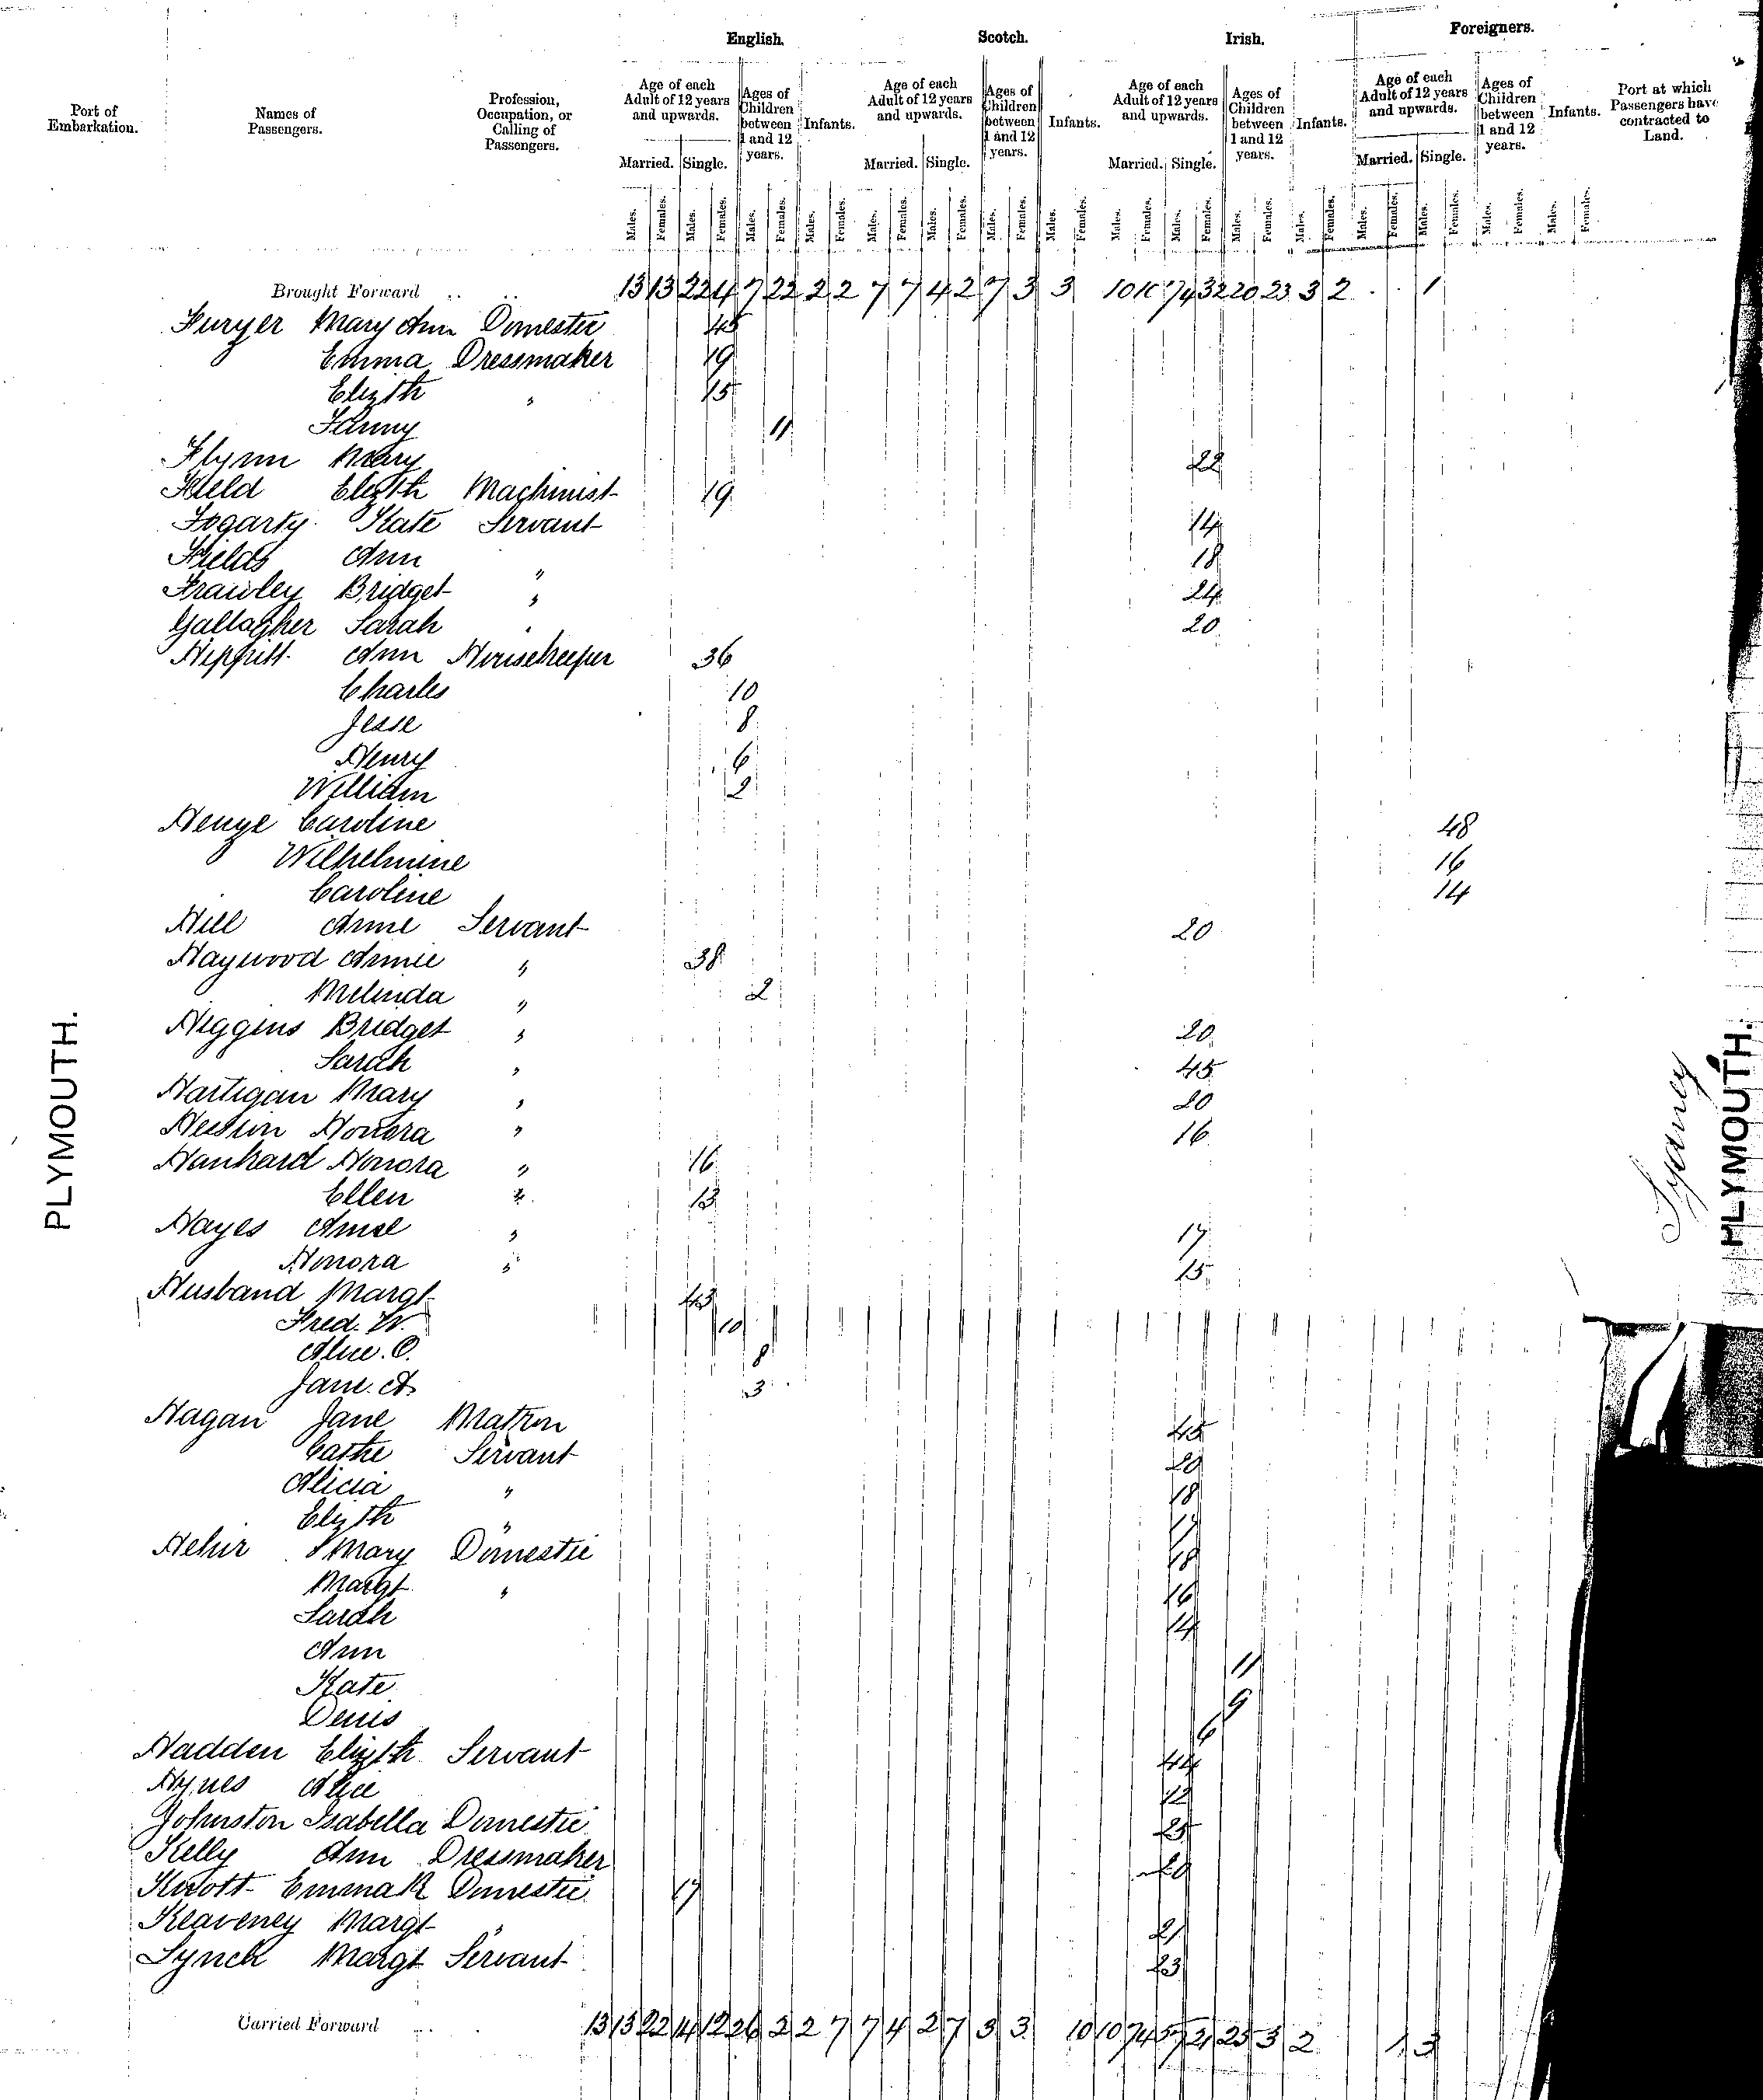 English. Scotch. Irish. Foreigners.
Port of Embarkation. Names of Passengers. Profession, Occupation, or Calling of Passengers. Age of each Adult of 12 years and upwards. Ages of Children between 1 and 12 years. Infants. Age of each Adult of 12 years and upwards. Ages of Children between 1 and 12 years. Infants. Age of each Adult of 12 years and upwards. Ages of Children between 1 and 12 years. Infants. Age of each Adult of 12 years and upwards. Ages of Children between 1 and 12 years. Infants. Port at which Passengers have contracted to Land.
Married. Single. Married. Single. Married. Single. Married. Single.
Males. Females. Males. Females. Males. Females. Males. Females. Males. Females. Males. Females. Males. Females. Males. Females. Males. Females. Males. Females. Males. Females. Males. Females. Males. Females. Males. Females. Males. Females. Males. Females.
Brought Forward .. .. 13 13 22 4 7 22 2 2 7 7 4 2 7 3 3 10 10 74 32 20 23 3 2 1
Mary Ann Domestic 45
Emma Dressmaker 19
Elizth " 15
Fanny 11
Flynn Mary 22
Field Elizth Machinist 19
Fogarty Kate Servant 14
Fields Ann " 18
Frawley Bridget " 24
Gallagher Sarah " 20
Ann Housekeeper 36
Charles 10
Jesse 8
Henry 6
William 2
Henge Caroline 48
Wilhelmine 16
Caroline 14
Hill Anne Servant 20
Haywood Annie " 38
Melinda " 2
Higgins Bridget " 20
Sarah " 45
Hartigan Mary " 20
Honora " 16
Hankard Honora " 16
Ellen " 13
Hayes Anne " 17
Honora " 15
Husband Margt 43
Fred. W. 10
Alice. O. 8
Jane. A. 3
Hagan Jane Matron 45
Cathe Servant 20
Alicia " 18
Elizth " 17
Hehir Mary Domestic 18
Margt " 16
Sarah 14
Ann 11
Kate 9
Denis 6
Hadden Elizth Servant 44
Hynes Alice
Johnston Isabella Domestic
Kelly Ann Dressmaker
Knott Emma K Domestic 17
Keaveney Margt " 21
Lynch Margt Servant 23
PLYMOUTH.
Sydney
PLYMOUTH.
Carried Forward .. . 13 13 22 14 12 26 2 2 7 7 4 2 7 3 3 10 10 74 57 21 25 3 2 1 3